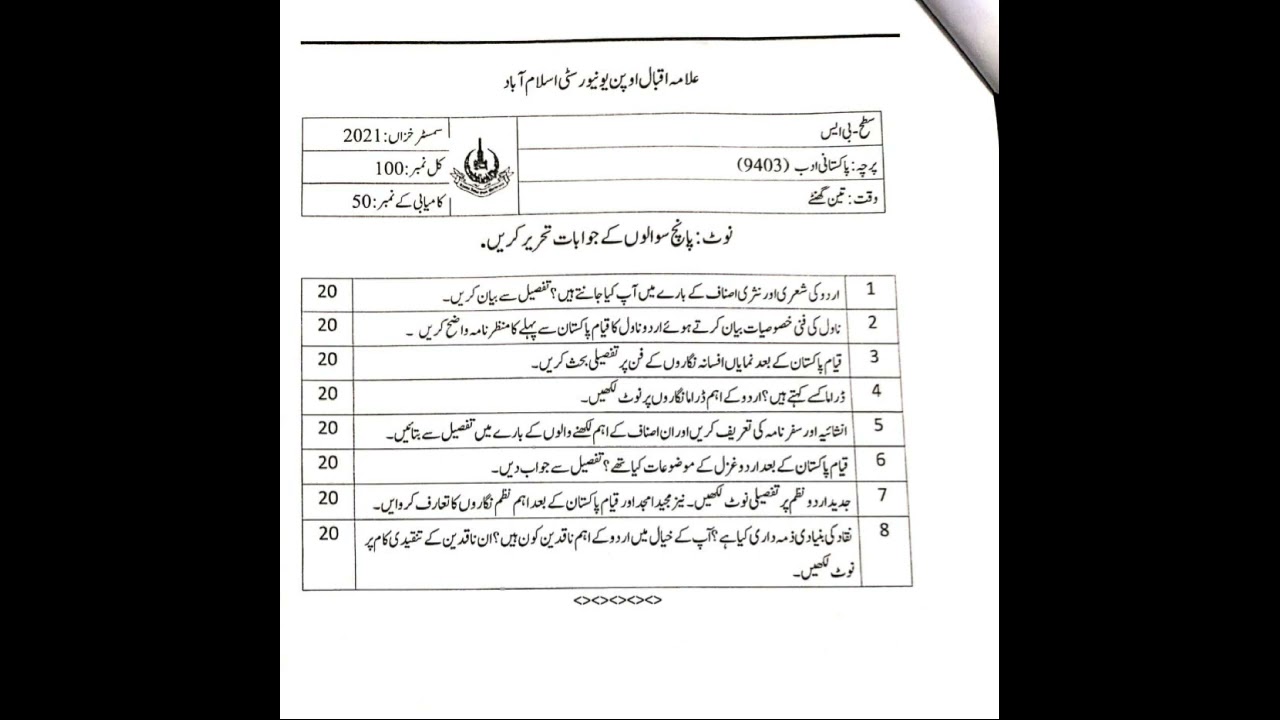 علامہ اقبال اوپن یونیورسٹی اسلام آباد
سطح-بی ایس
سمسٹر خزاں: 2021
پرچہ: پاکستانی ادب (9403)
کل نمبر: 100
وقت: تین گھنٹے
کامیابی کے نمبر: 50
نوٹ: پانچ سوالوں کے جوابات تحریر کریں۔
1 اردو کی شعری اور نثری اصناف کے بارے میں آپ کیا جانتے ہیں؟ تفصیل سے بیان کریں۔ 20
2 ناول کی فنی خصوصیات بیان کرتے ہوئے اردو ناول کا قیام پاکستان سے پہلے کا منظر نامہ واضح کریں ۔ 20
3 قیام پاکستان کے بعد نمایاں افسانہ نگاروں کے فن پر تفصیلی بحث کریں۔ 20
4 ڈراما کسے کہتے ہیں؟ اردو کے اہم ڈراما نگاروں پر نوٹ لکھیں۔ 20
5 انشائیہ اور سفر نامہ کی تعریف کریں اور ان اصناف کے اہم لکھنے والوں کے بارے میں تفصیل سے بتائیں۔ 20
6 قیام پاکستان کے بعد اردو غزل کے موضوعات کیا تھے؟ تفصیل سے جواب دیں۔ 20
7 جدید اردو نظم پر تفصیلی نوٹ لکھیں۔ نیز مجید امجد اور قیام پاکستان کے بعد اہم نظم نگاروں کا تعارف کروایں۔ 20
8 نقاد کی بنیادی ذمہ داری کیا ہے؟ آپ کے خیال میں اردو کے اہم ناقدین کون ہیں؟ ان ناقدین کے تنقیدی کام پر 20
نوٹ لکھیں۔
<><><><><>